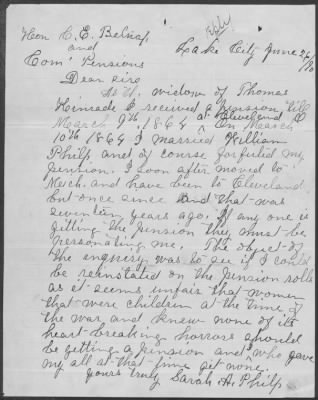 Hon C. E. Belknap
Lake City June 26/10
and
Com' Pensions
Dear sirs
As U. widow of Thomas
Kinnaide I received a pension till
March 9th. 1864 at Cleveland O
On March
10th 1864 I married William
Philp, and of course forfited my
pension. I soon after moved to
Mich. and have been to Cleveland
but once since and that was
seventeen years ago, If any one is
gitting the pension they must be
personating me. The object of
the enquery was to see if I could
be reinstated on the pension rolls
as it seems unfair that women
that were children at the time of
the war and knew none of its
heart-breaking horrors should
be getting a pension and I who gave
my all at that time get none.
yours truly Sarah A. Philp